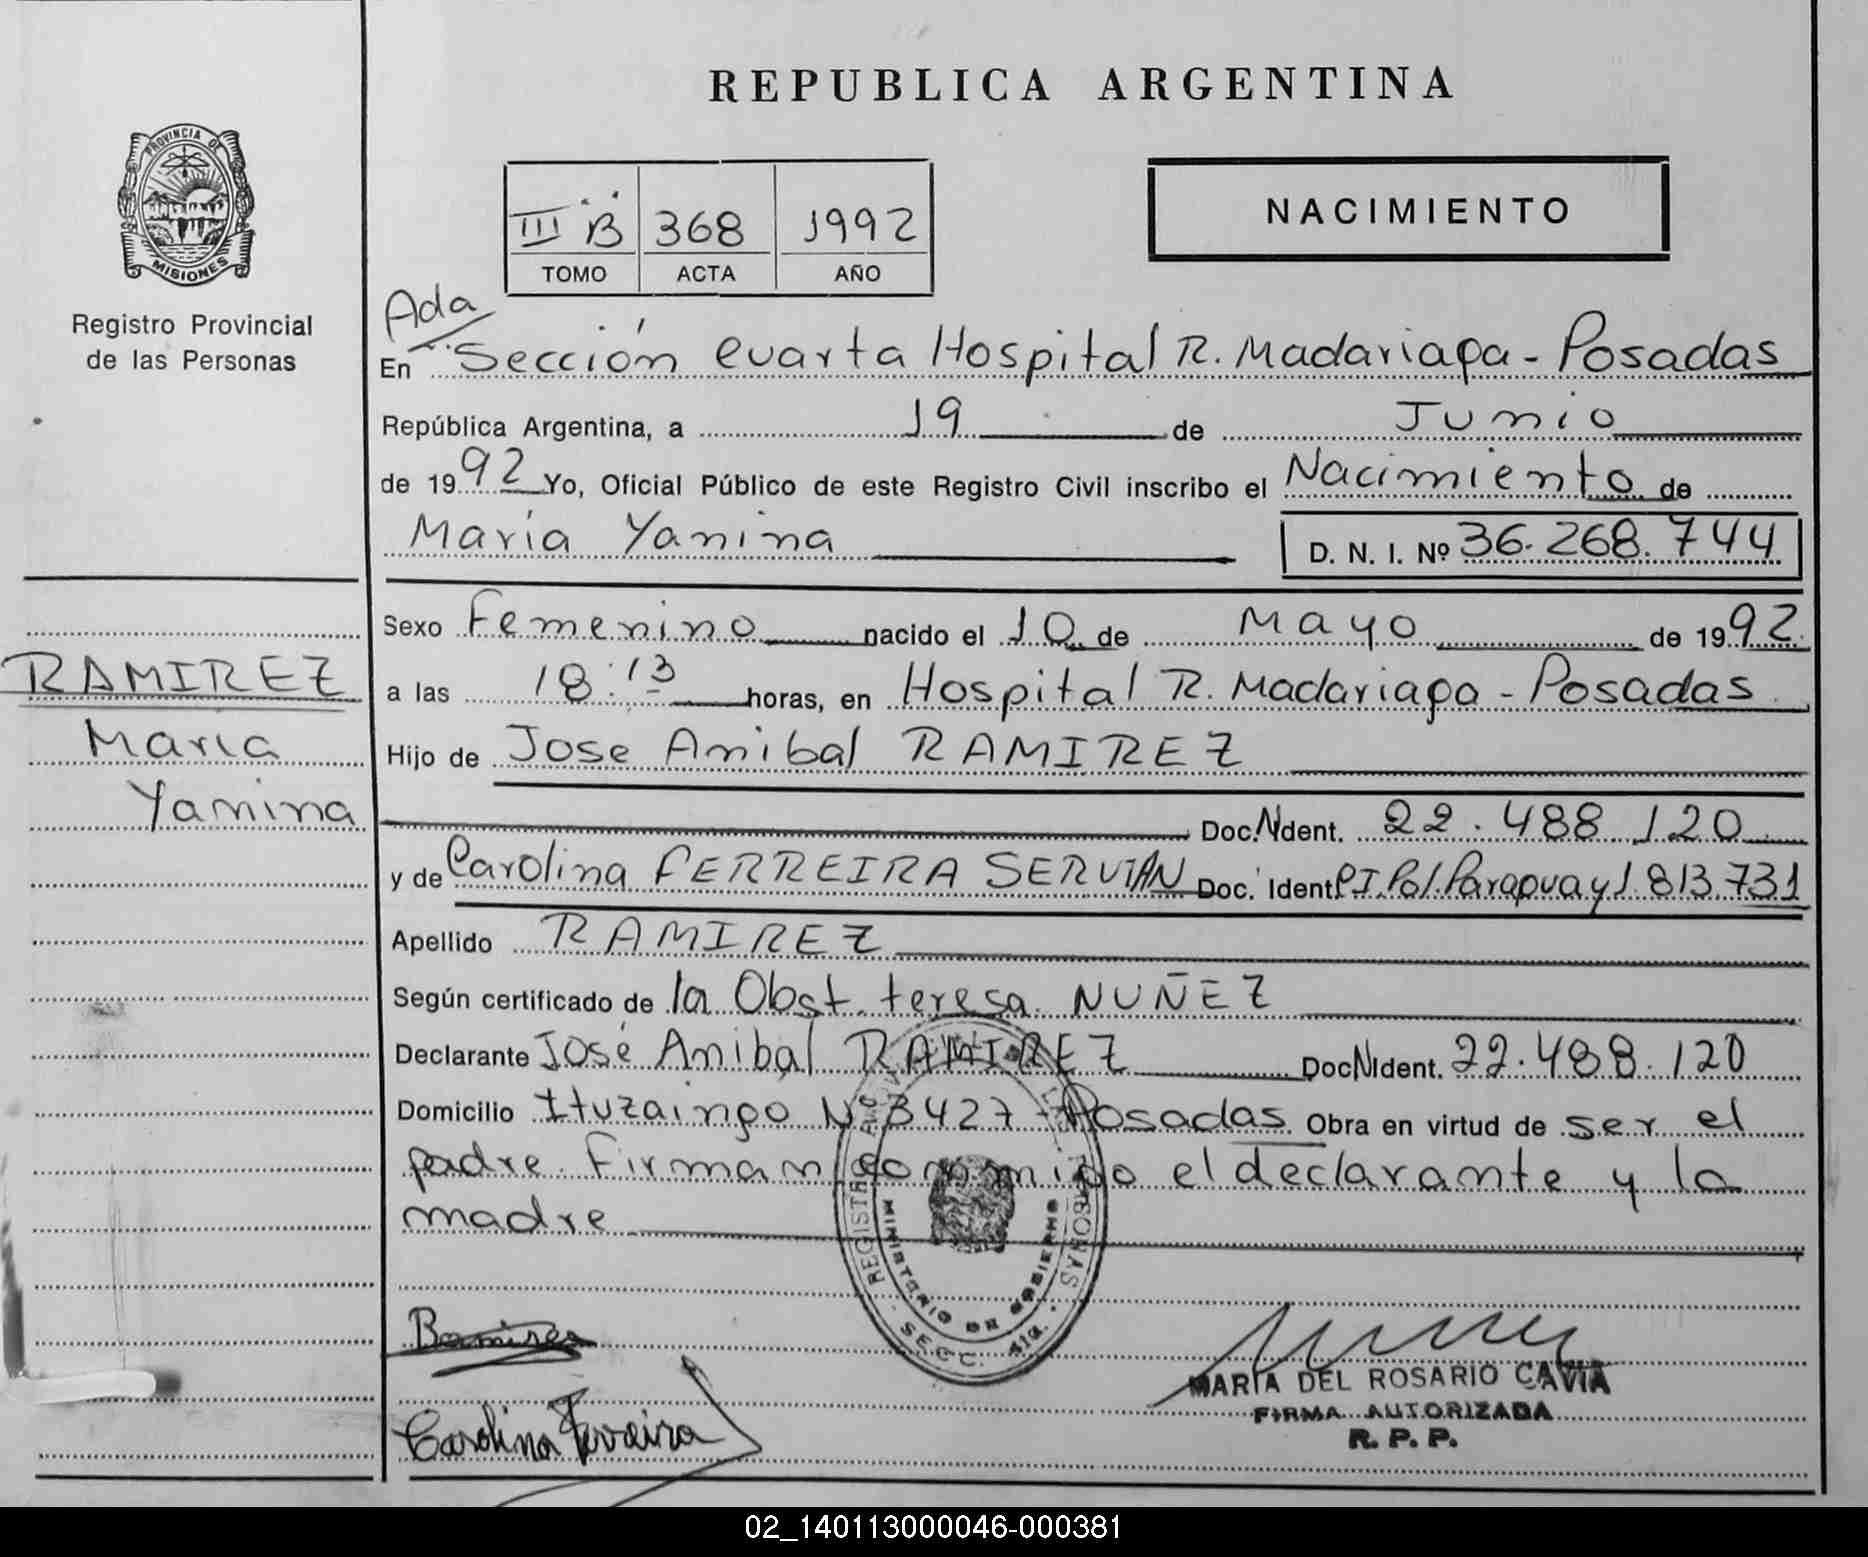 REPUBLICA ARGENTINA
PROVINCIA DE
MISIONES
Registro Provincial
de las Personas
III B 368 1992
TOMO ACTA AÑO
NACIMIENTO
Ada
En Sección Cuarta Hospital R. Madariaga - Posadas
República Argentina, a 19 de Junio
de 1992 Yo, Oficial Público de este Registro Civil inscribo el Nacimiento de
María Yanina D. N. I. Nº 36.268.744
Sexo Femenino nacido el 10 de Mayo de 1992.
RAMIREZ
María
Yanina
a las 18:13 horas, en Hospital R. Madariaga - Posadas
Hijo de Jose Anibal RAMIREZ
Doc. N Ident. 22.488.120
y de Carolina FERREIRA SERVIAN Doc. Ident. C.I. Pol. Paraguay 1.813.731
Apellido RAMIREZ
Según certificado de la Obst. teresa NUÑEZ
Declarante José Anibal RAMIREZ Doc N Ident. 22.488.120
Domicilio Ituzaingo Nº 3427 - Posadas Obra en virtud de ser el
padre. Firman conmigo el declarante y la
madre
REGISTRO PERSONAS
MINISTERIO DE GOBIERNO
SECC. 4ta.
Ramirez
Carolina Ferreira
MARIA DEL ROSARIO CAVIA
FIRMA AUTORIZADA
R. P. P.
02_140113000046-000381